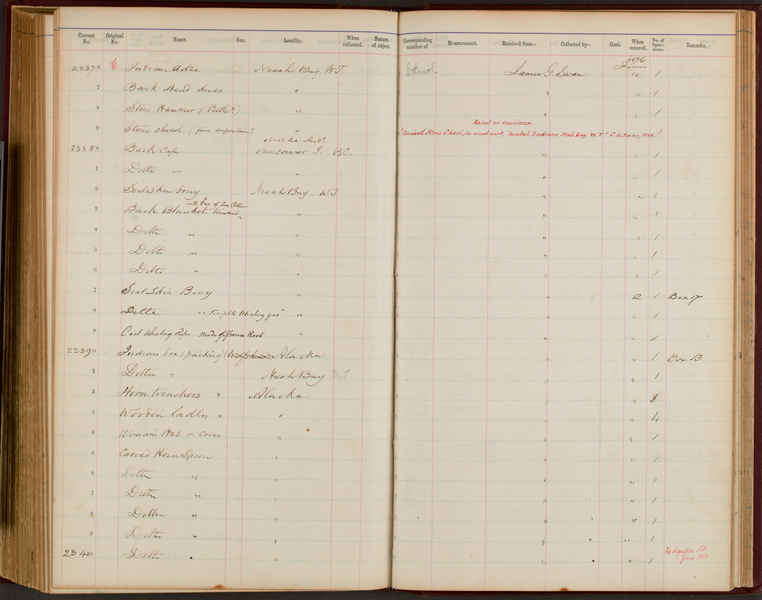 Current No. Original No. Name. Sex. Locality. When collected. Nature of object. Corresponding number of Measurement. Received from— Collected by— Cost. When entered. No. of Speci-mens. Remarks.
1876
June
23376 Indian Adze Neah Bay W.T. James G. Swan 10 1
7 Bark Head dress " " " 1
8 Stone Hammer " " " 1
Label on specimen.
9 Stone chisel " Ancient Stone Chisel, for wood work, Makah Indians Neah Bay, W.T." J.G. Swan, 1
Nootka Indns
23380 Bark Cape Vancouver I. B.C. " " 1
1 Ditto " " " " 1
2 Seal Skin buoy Neah Bay. W.T " " 1
with Fur of Sea Otter
3 Bark Blanket trimmed " " " 1
4 Ditto " " " " 1
5 Ditto " " " " 1
6 Ditto " " " " 1
7 Seal Skin Buoy " " 12 1 Box 17
8 Ditto " Complete Whaling gear " " " 1 "
9 Coil Whaling Rope Made of Spruce Root " " " 1 "
23390 Indian box (packing) Alaska " " 1 Box 13
1 Ditto " Neah Bay W.T " " 1
2 Horn trenchers " Alaska " "
3 Wooden ladles " " " " 4
4 Woman's Hat & Cover " " " 1
5 Carved Horn Spoon " " " 1
6 Ditto " " " " 1
7 Ditto " " " " 1
8 Ditto " " " " 1
9 Ditto " " " " 1
23400 Ditto " " " " 1